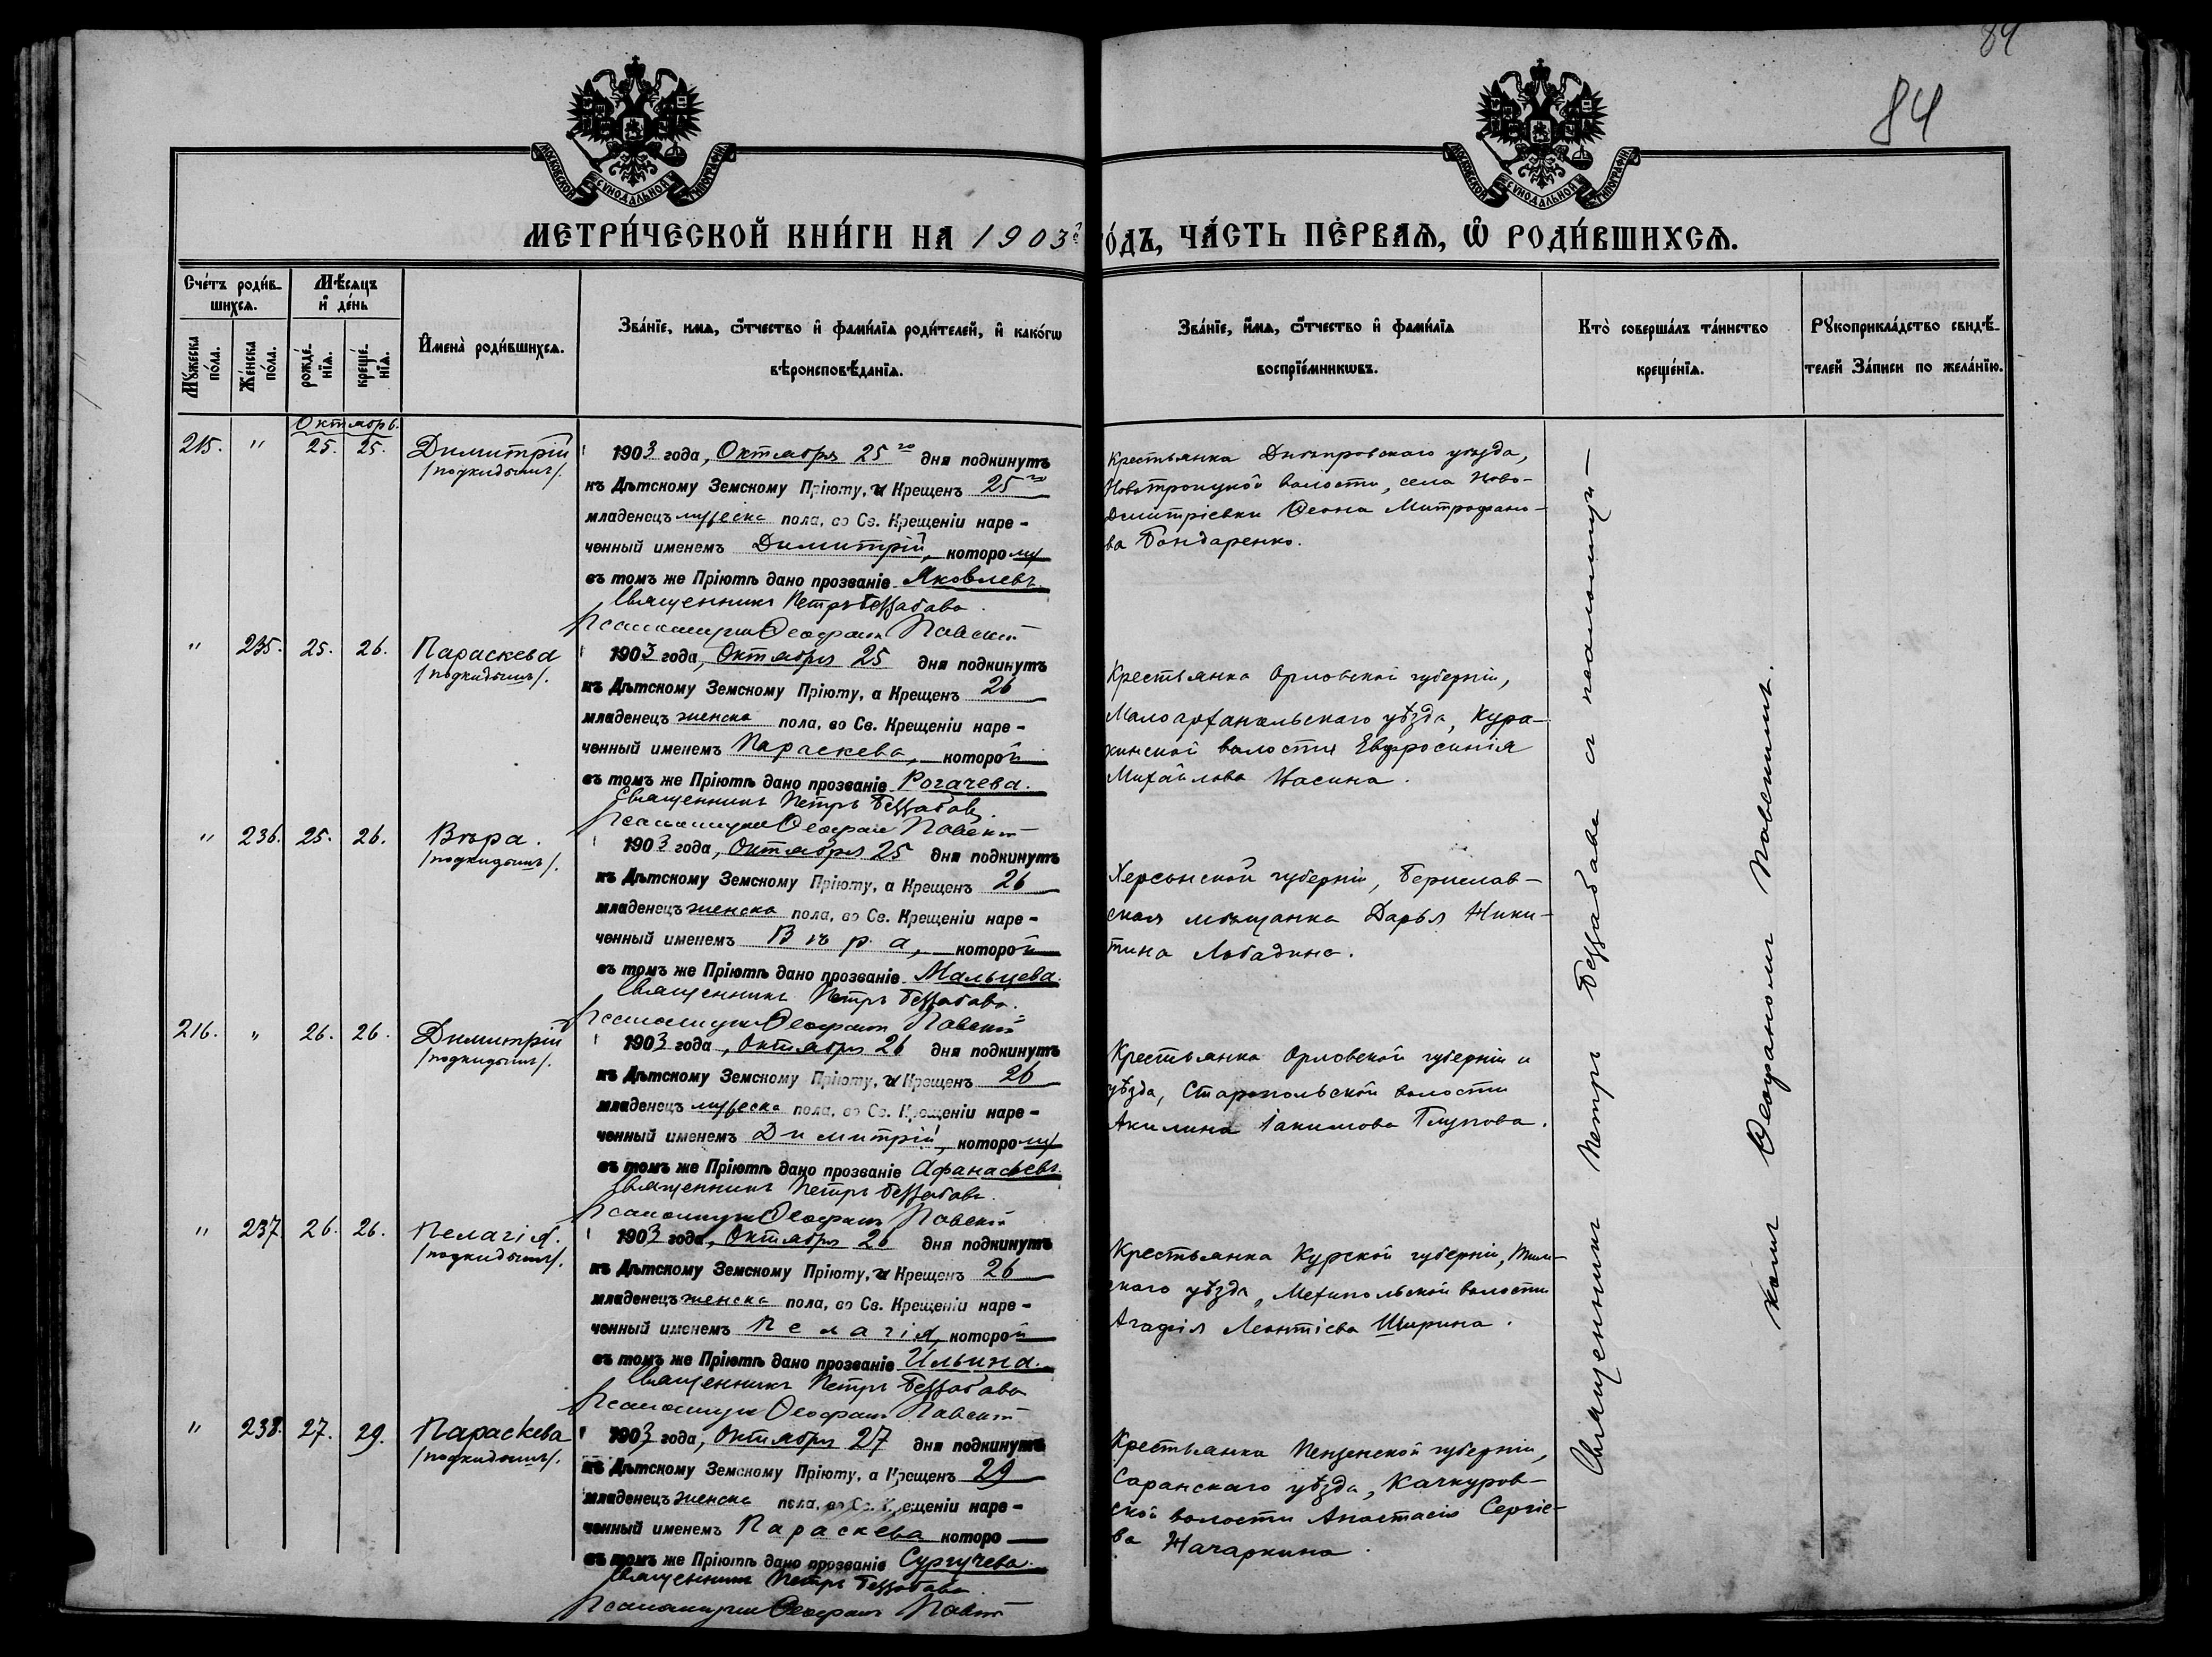 84
84
МОСКОВСКОЙ СѴНОДАЛЬНОЙ ТИПОГРАФІИ
МОСКОВСКОЙ СѴНОДАЛЬНОЙ ТИПОГРАФІИ
МЕТРИ́ЧЕСКОЙ КНИ́ГИ НА 1903 го́дъ, ЧА́СТЬ ПЕ́РВАѦ, Ѡ РОДИ́ВШИХСѦ.
Сче́тъ роди́в-
шихсѧ.
Мꙋ́жеска по́ла.
Же́нска по́ла.
Мѣ́сѧцъ
и҆ де́нь
рожде́-
нїѧ.
креще́-
нїѧ.
И҆мена̀ роди́вшихсѧ.
Зва́нїе, имѧ, ѻ҆́тчество и҆ фами́лїѧ роди́телей, и҆ како́гѡ
вѣроисповѣ́данїѧ.
Зва́нїе, и҆́мѧ, ѻ҆́тчество и҆ фами́лїѧ
воспрїе́мникѡвъ.
Кто̀ соверша́лъ та́инство
креще́нїѧ.
Рꙋкоприкла́дство свидѣ́-
телей За́писи по жела́нїю.
Октябрь.
215. " 25. 25. Димитрій
/подкидышъ/.
1903 года, Октября 25го дня подкинутъ
къ Дѣтскому Земскому Пріюту, и Крещенъ 25го
младенецъ мужеска пола, во Св. Крещеніи наре-
ченный именемъ Димитрій, которому
въ томъ же Пріютѣ дано прозваніе Яковлевъ.
Священникъ Петръ Беззабава.
Псаломщикъ Ѳеофанъ Павскій
Крестьянка Днѣпровскаго уѣзда,
Новотроицкой волости, села Ново-
Дмитріевки Ѳеона Митрофано-
ва Бондаренко.
" 235. 25. 26. Параскева
/подкидышъ/.
1903 года, Октября 25 дня подкинутъ
къ Дѣтскому Земскому Пріюту, а Крещенъ 26
младенецъ женска пола, во Св. Крещеніи наре-
ченный именемъ Параскева, которой
въ томъ же Пріютѣ дано прозваніе Рогачева.
Священникъ Петръ Беззабава
Псаломщикъ Ѳеофанъ
Крестьянка Орловской губерніи,
Малоархангельскаго уѣзда, Кура-
кинской волости Евфросинія
Михайлова Насина.
" 236. 25. 26. Вѣра.
/подкидышъ/.
1903 года, Октября 25 дня подкинутъ
къ Дѣтскому Земскому Пріюту, а Крещенъ 26
младенецъ женска пола, во Св. Крещеніи наре-
ченный именемъ Вѣра, которой
въ томъ же Пріютѣ дано прозваніе Мальцева.
Священникъ Петръ Беззабава.
Псаломщикъ Ѳеофанъ
Херсонской губерніи, Берислав-
ская мѣщанка Дарья Ники-
тина Лободина.
216. " 26. 26. Димитрій
/подкидышъ/.
1903 года, Октября 26 дня подкинутъ
къ Дѣтскому Земскому Пріюту, и Крещенъ 26
младенецъ мужеска пола, во Св. Крещеніи наре-
ченный именемъ Димитрій, которому
въ томъ же Пріютѣ дано прозваніе Афанасьевъ.
Священникъ Петръ Беззабава.
Псаломщикъ Ѳеофанъ
Крестьянка Орловской губерніи и
уѣзда, Старопольской волости
Акилина Іакимова Глупова.
" 237. 26. 26. Пелагія.
/подкидышъ/.
1903 года, Октября 26 дня подкинутъ
къ Дѣтскому Земскому Пріюту, и Крещенъ 26
младенецъ женска пола, во Св. Крещеніи наре-
ченный именемъ Пелагія, которой
въ томъ же Пріютѣ дано прозваніе Ильина.
Священникъ Петръ Беззабава
Псаломщикъ Ѳеофанъ
Крестьянка Курской губерніи,
уѣзда, Мехипольской волости
Агафія Леонтіева Ширина.
" 238. 27. 29. Параскева
/подкидышъ/.
1903 года, Октября 27 дня подкинутъ
къ Дѣтскому Земскому Пріюту, а Крещенъ 29
младенецъ женска пола, во Св. Крещеніи наре-
ченный именемъ Параскева которо
въ томъ же Пріютѣ дано прозваніе Сургучева.
Священникъ Петръ Беззабава.
Псаломщикъ Ѳеофанъ
Крестьянка Пензенской губерніи,
Саранскаго уѣзда, Качкуров-
ской волости Анастасія Сергіе-
ва Начаркина.
Священникъ Петръ Беззабава съ псаломщи-
комъ Ѳеофаномъ